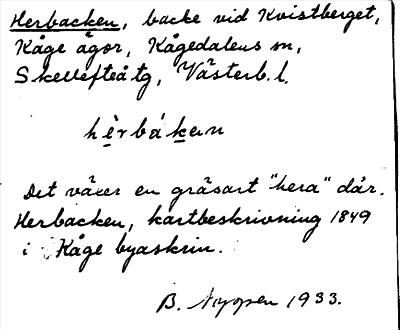 Herbacken, backe vid Kvistberget,
Kåge ägor, Kågedalens sn,
Skellefteå tg, Västerb. l.
hèrbákan
Det växer en gräsart "hera" där.
Herbacken, kartbeskrivning 1849
i Kåge byaskrin.
B. 1933.